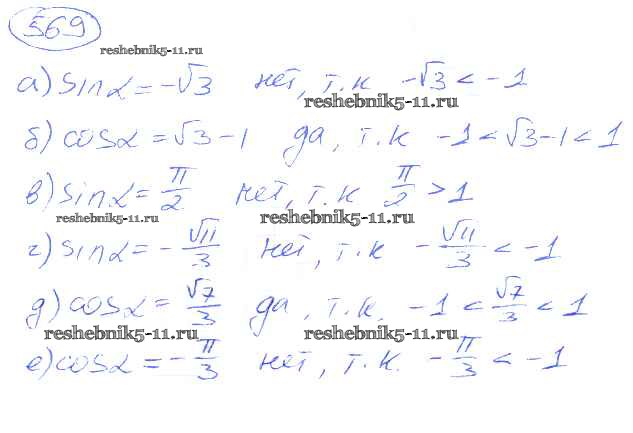 569
reshebnik5-11.ru
а) sinα = -√3 нет, т.к -√3 < -1
reshebnik5-11.ru
б) cosα = √3 - 1 да, т.к -1 < √3-1 < 1
в) sinα = π/2 нет, т.к π/2 > 1
reshebnik5-11.ru reshebnik5-11.ru
г) sinα = - √11/3 нет, т.к - √11/3 < -1
д) cosα = √7/3 да, т.к. -1 < √7/3 < 1
reshebnik5-11.ru reshebnik5-11.ru
е) cosα = - π/3 нет, т.к. - π/3 < -1